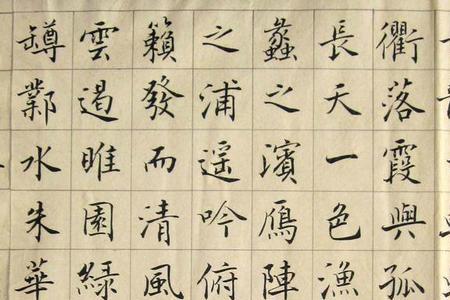 衢落霞與孤
長天一色漁
蠡之濱鴈陣
之浦遥吟俯
籟發而清風
雲遏睢園綠
罇鄴水朱華